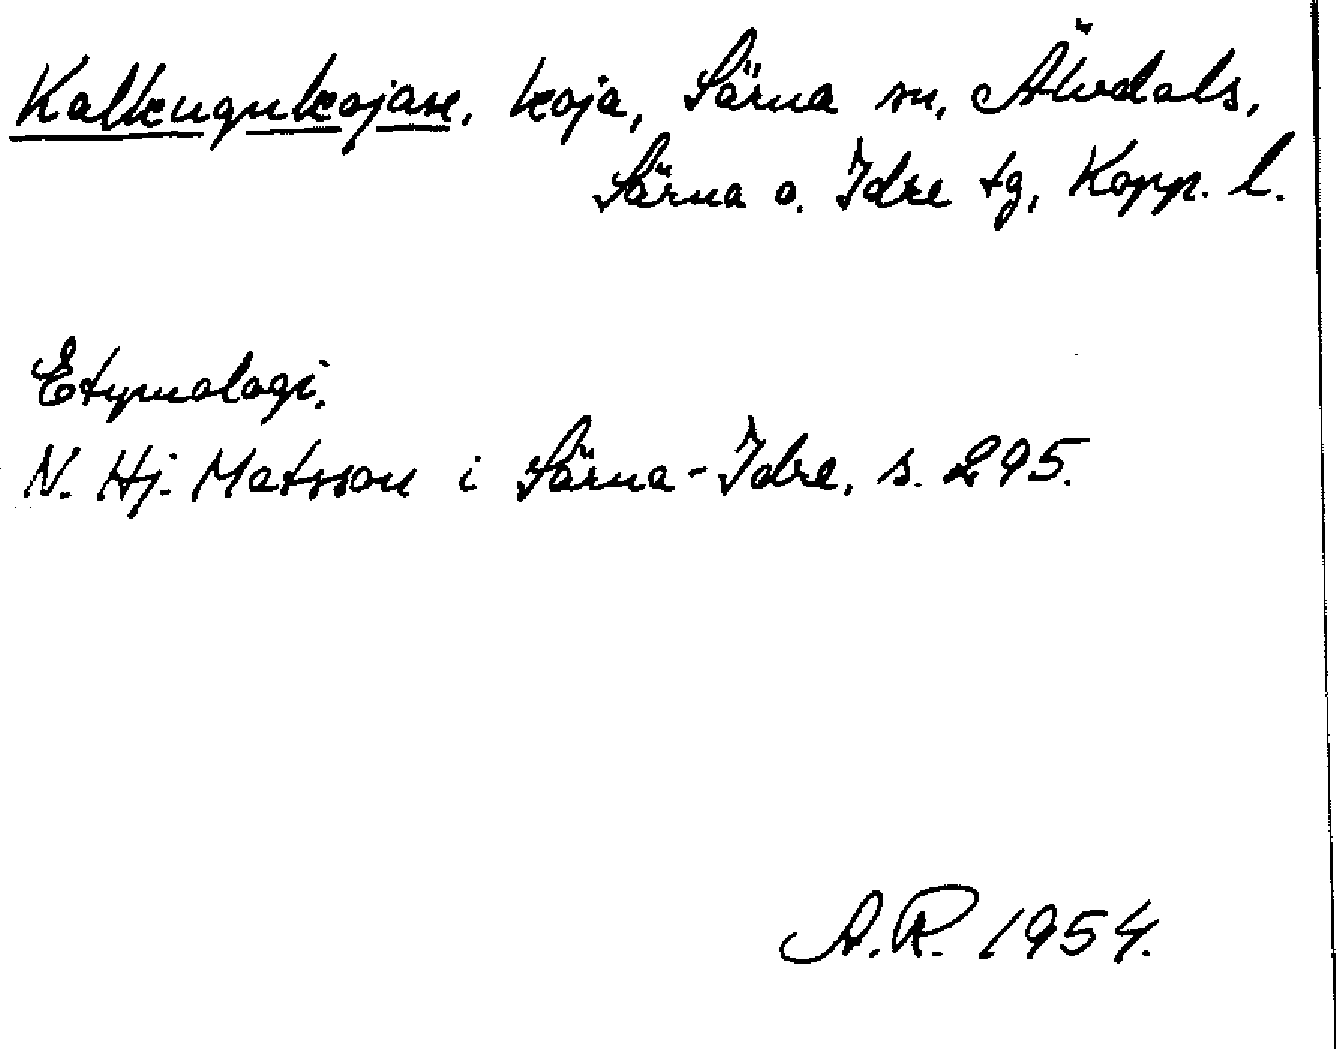 Kalkugnkojan. koja, Särna sn, Älvdals,
Särna o. Idre tg, Kopp. l.
Etymologi.
N. Hj. Matsson i Särna-Idre, s. 295.
A.R. 1954.